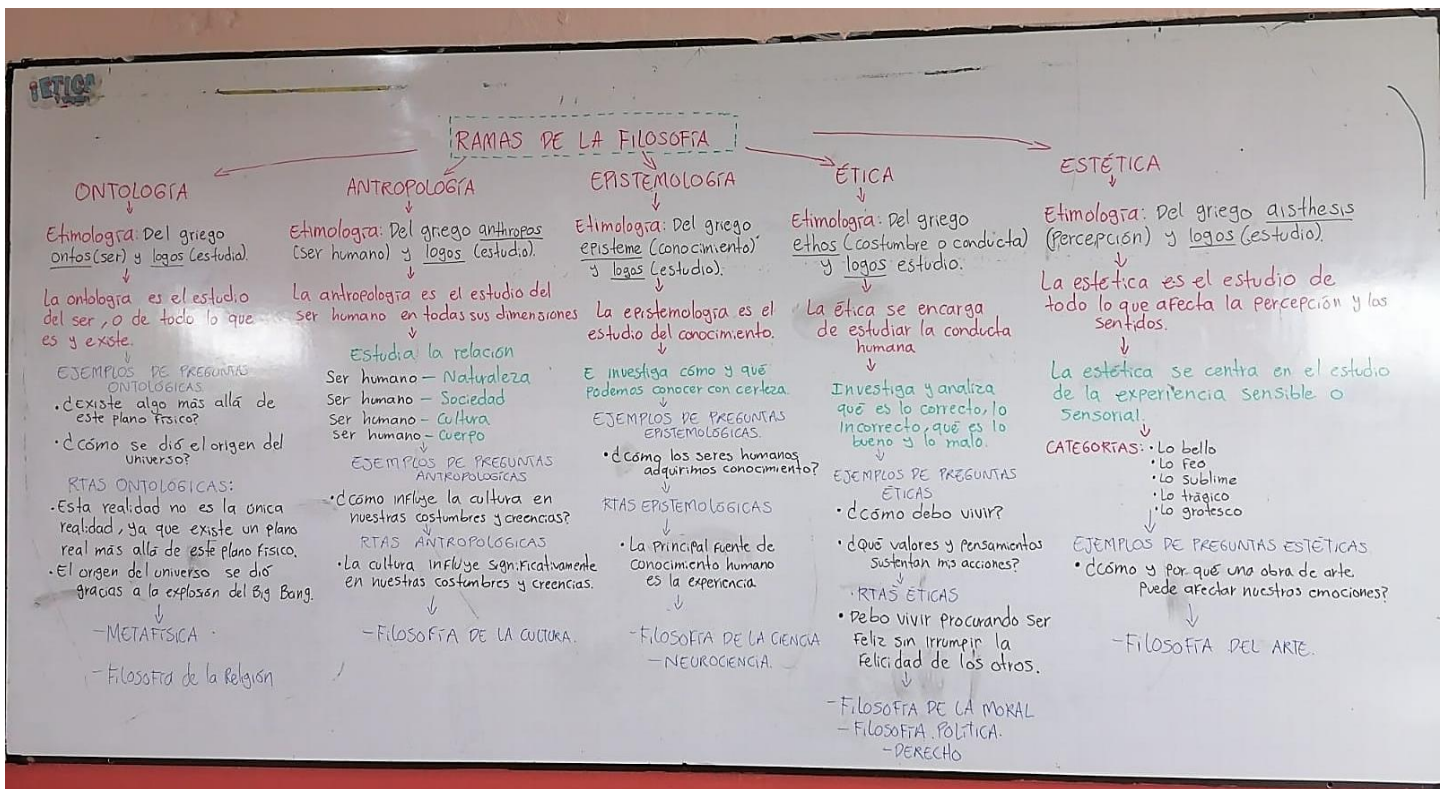 ¡ETICA
RAMAS DE LA FILOSOFÍA
ONTOLOGÍA
Etimología: Del griego
ontos (ser) y logos (estudio).
La ontología es el estudio
del ser, o de todo lo que
es y existe.
EJEMPLOS DE PREGUNTAS
ONTOLÓGICAS
• ¿Existe algo más allá de
este plano físico?
• ¿Cómo se dió el origen del
Universo?
RTAS ONTOLÓGICAS:
• Esta realidad no es la única
realidad, ya que existe un plano
real más allá de este plano físico.
• El origen del universo se dió
gracias a la explosón del Big Bang.
- METAFÍSICA
- Filosofía de la Religión
ANTROPOLOGÍA
Etimología: Del griego anthropos
(ser humano) y logos (estudio).
La antropología es el estudio del
ser humano en todas sus dimensiones
Estudia la relación
Ser humano – Naturaleza
Ser humano – Sociedad
Ser humano – Cultura
Ser humano – Cuerpo
EJEMPLOS DE PREGUNTAS
ANTROPOLÓGICAS
• ¿Cómo influye la cultura en
nuestras costumbres y creencias?
RTAS ANTROPOLÓGICAS
• La cultura influye significativamente
en nuestras costumbres y creencias.
- FILOSOFÍA DE LA CULTURA.
EPISTEMOLOGÍA
Etimología: Del griego
episteme (conocimiento)
y logos (estudio).
La epistemología es el
estudio del conocimiento.
E investiga cómo y qué
podemos conocer con certeza.
EJEMPLOS DE PREGUNTAS
EPISTEMOLÓGICAS.
• ¿Cómo los seres humanos
adquirimos conocimiento?
RTAS EPISTEMOLÓGICAS
• La principal fuente de
conocimiento humano
es la experiencia
- FILOSOFÍA DE LA CIENCIA
- NEUROCIENCIA.
ÉTICA
Etimología: Del griego
ethos (costumbre o conducta)
y logos estudio.
La ética se encarga
de estudiar la conducta
humana
Investiga y analiza
qué es lo correcto, lo
incorrecto, qué es lo
bueno y lo malo.
EJEMPLOS DE PREGUNTAS
ÉTICAS
• ¿Cómo debo vivir?
• ¿Qué valores y pensamientos
sustentan mis acciones?
• RTAS ÉTICAS
• Debo vivir procurando ser
feliz sin irrumpir la
felicidad de los otros.
- FILOSOFÍA DE LA MORAL
- FILOSOFÍA POLÍTICA.
- DERECHO
ESTÉTICA
Etimología: Del griego aisthesis
(percepción) y logos (estudio).
La estética es el estudio de
todo lo que afecta la percepción y los
sentidos.
La estética se centra en el estudio
de la experiencia sensible o
sensorial.
CATEGORÍAS: • Lo bello
• Lo feo
• Lo sublime
• Lo trágico
• Lo grotesco
EJEMPLOS DE PREGUNTAS ESTÉTICAS
• ¿Cómo y por qué una obra de arte
puede afectar nuestras emociones?
- FILOSOFÍA DEL ARTE.